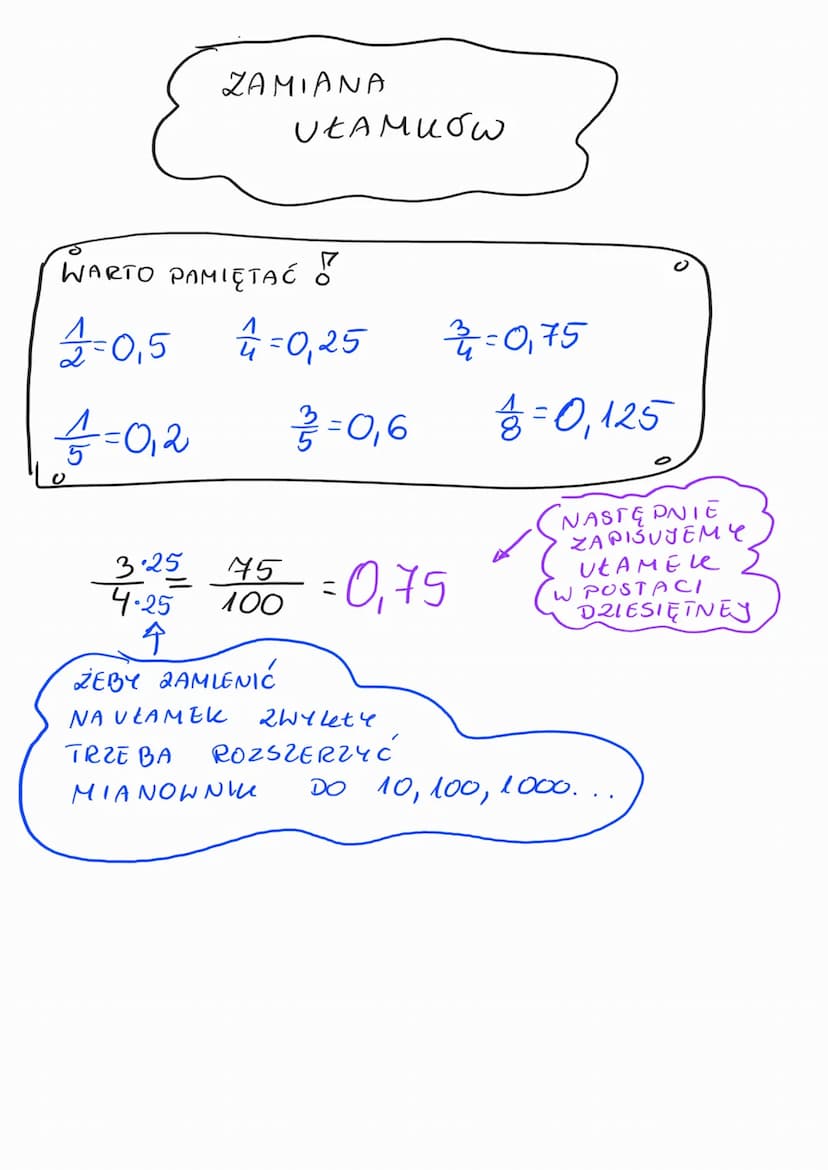 ZAMIANA
UŁAMKÓW
WARTO PAMIĘTAĆ !
1/2=0,5 1/4=0,25 3/4=0,75
1/5=0,2 3/5=0,6 1/8=0,125
NASTĘPNIE
ZAPISUJEMY
UŁAMEK
W POSTACI
DZIESIĘTNEJ
3·25/4·25 = 75/100 = 0,75
ŻEBY ZAMIENIĆ
NA UŁAMEK ZWYKŁY
TRZEBA ROZSZERZYĆ
MIANOWNIK DO 10, 100, 1000...